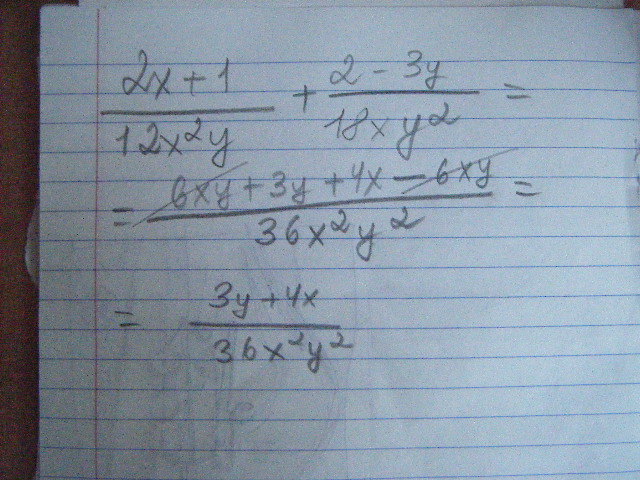 (2x+1)/(12x²y) + (2-3y)/(18xy²) =
= (6xy+3y+4x-6xy)/(36x²y²) =
= (3y+4x)/(36x²y²)